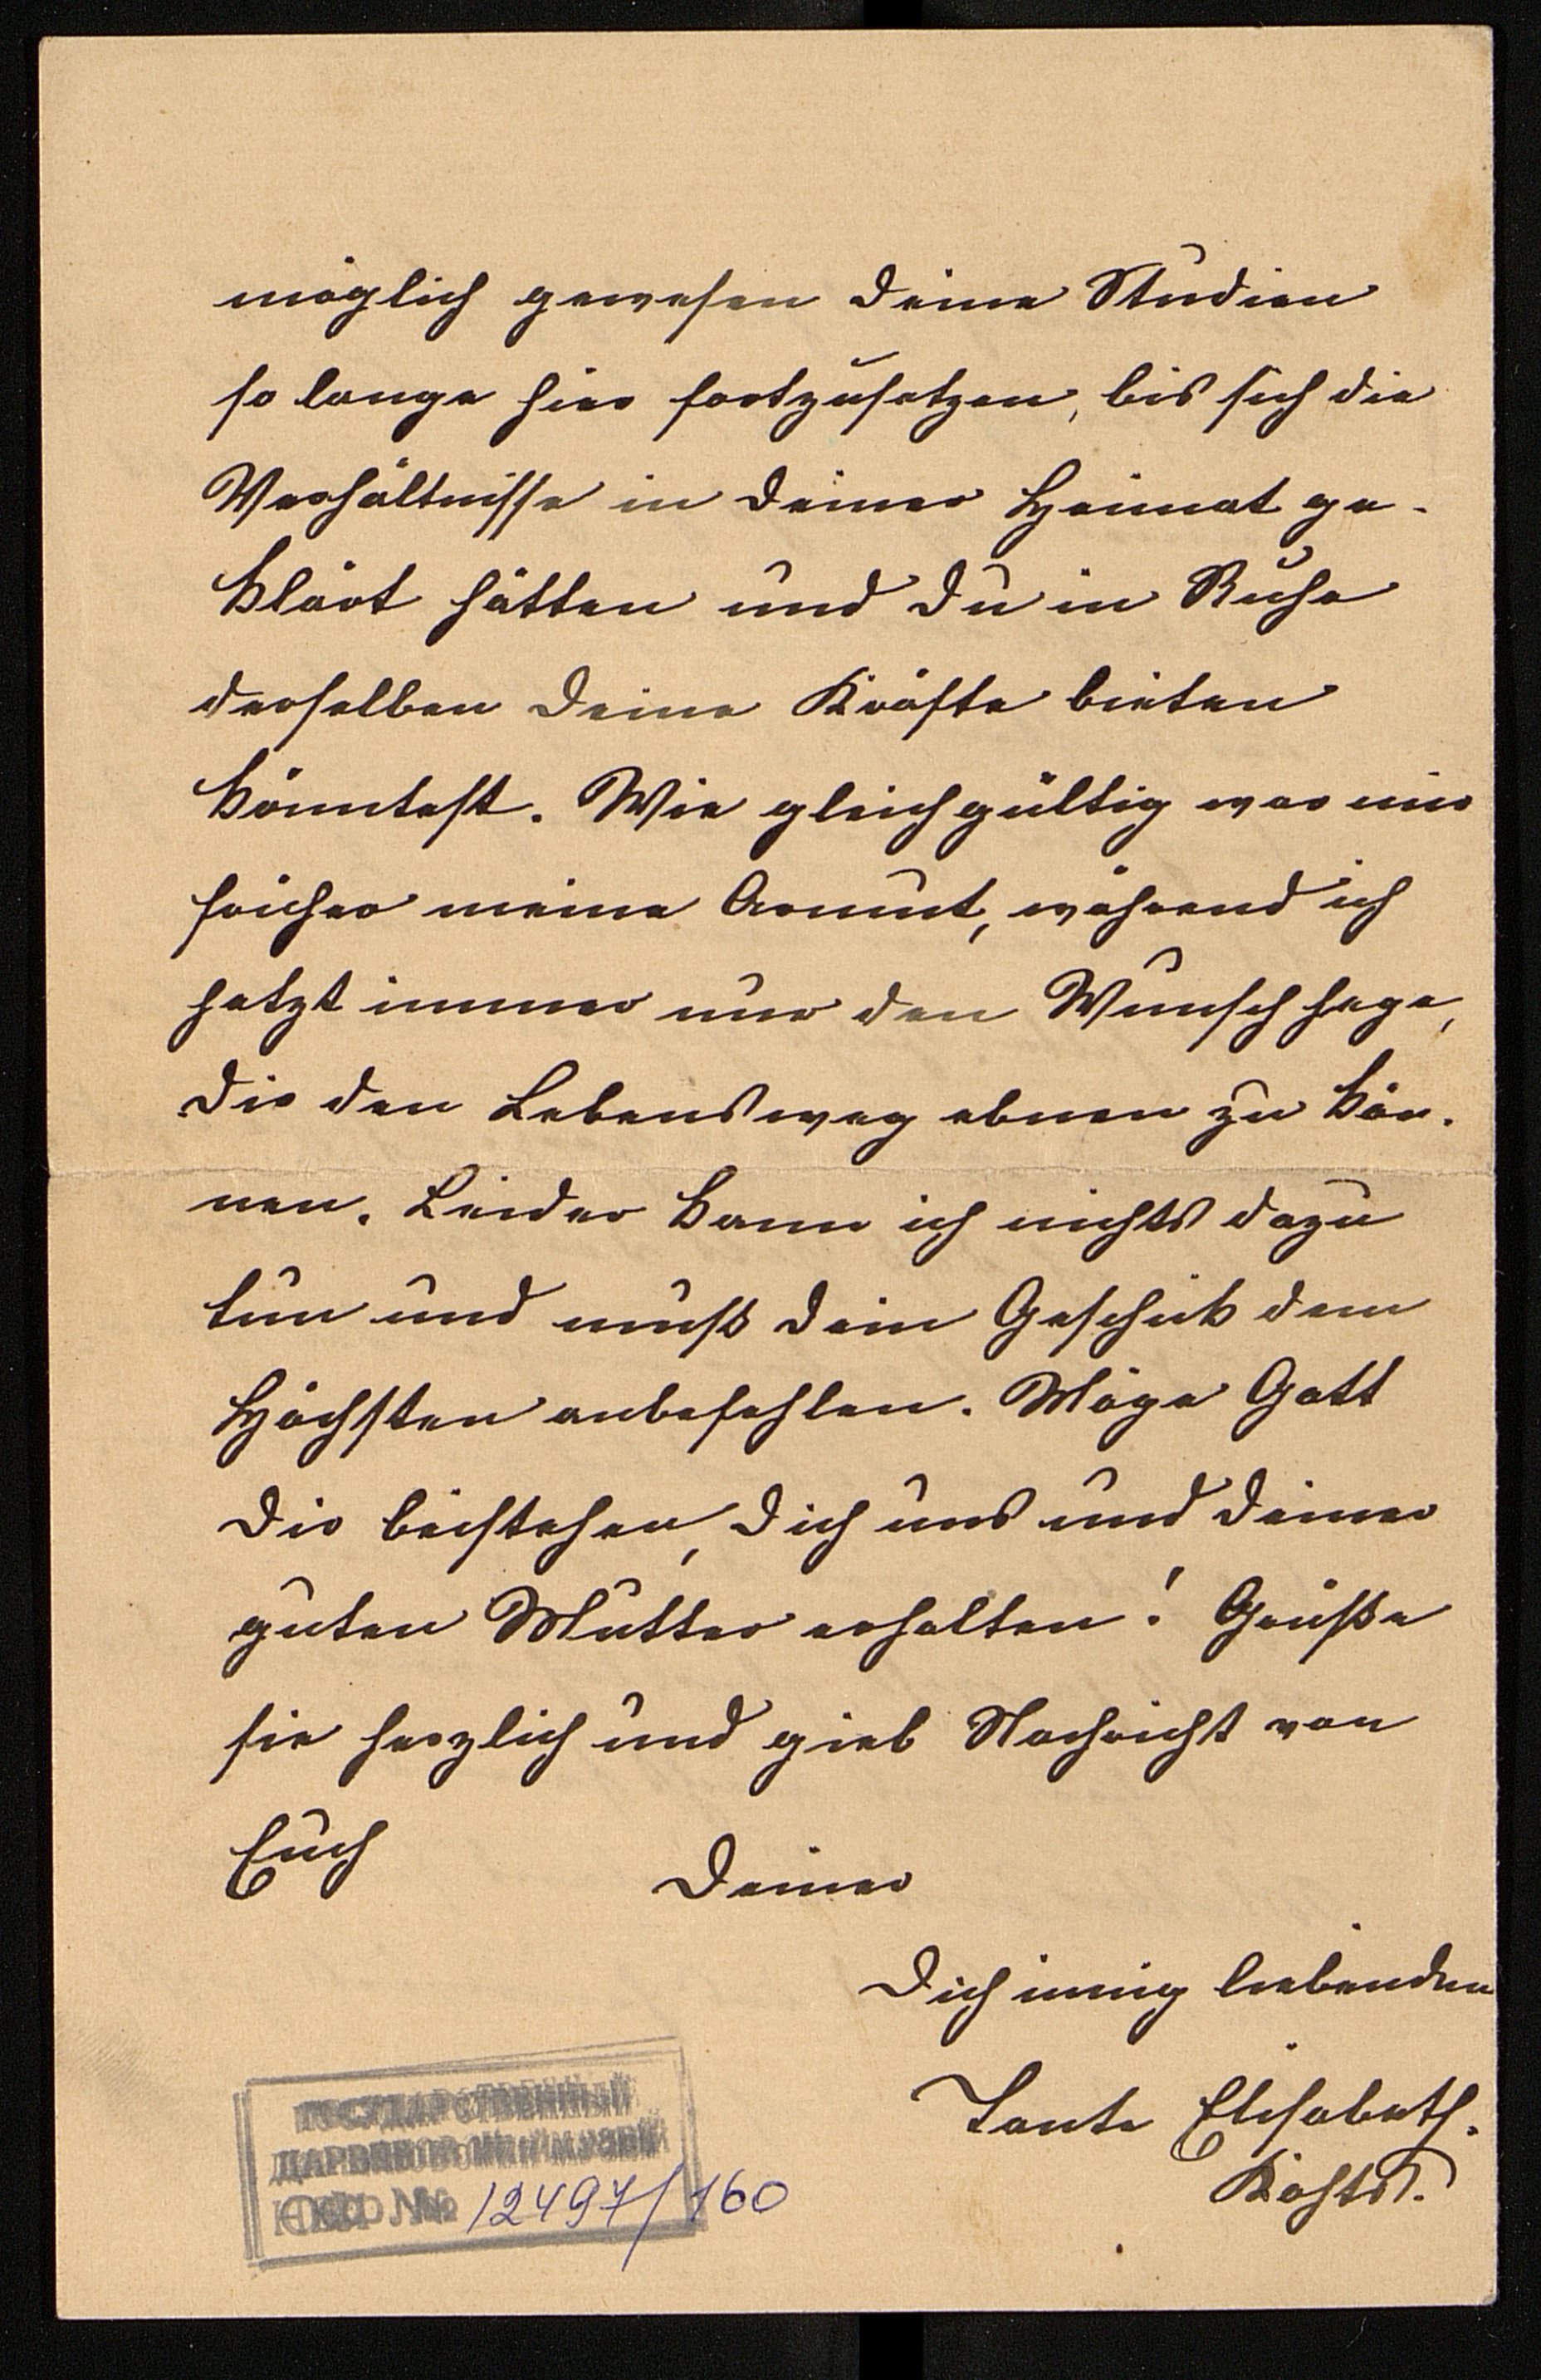 möglich gewesen Deine Studien
so lange hier fortzusetzen, bis sich die
Verhältnisse in Deiner Heimat ge-
klärt hätten und Du in Ruhe
derselben Deine Kräfte bieten
könntest. Wie gleichgültig war mir
früher meine Armut, während ich
jetzt immer nur den Wunsch hege,
Dir den Lebensweg ebnen zu kön-
nen. Leider kann ich nichts dazu
tun und muß Dein Geschick dem
Höchsten anbefehlen. Möge Gott
Dir beistehen, Dich uns und Deiner
guten Mutter erhalten! Grüße
sie herzlich und gieb Nachricht von
Euch Deiner
Dich innig liebenden
Tante Elisabeth.
ГОСУДАРСТВЕННЫЙ
ДАРВИНОВСКИЙ МУЗЕЙ
№ 12497/160